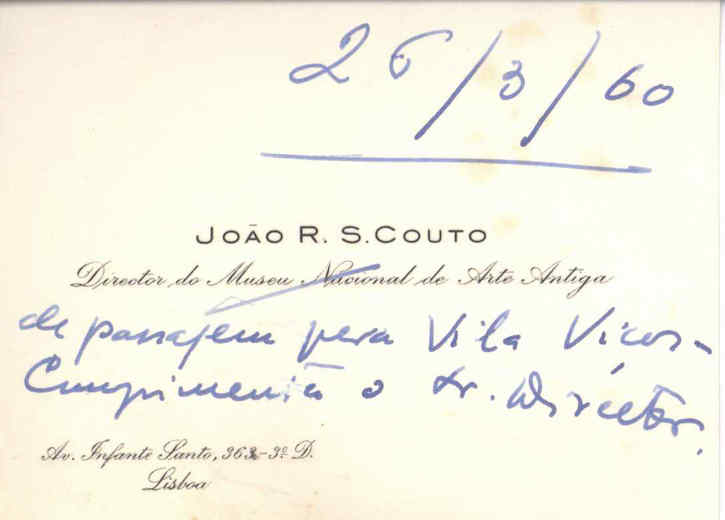 26/3/60
JOÃO R. S. COUTO
Director do Museu Nacional de Arte Antiga
de passagem para Vila Viços-
Cumprimenta o Sr. Director.
Av. Infante Santo, 363-3º D.
Lisboa